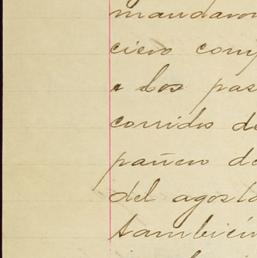 mandaron
ciero comp
a los pas
corrido de
pañero de
del agosto
también